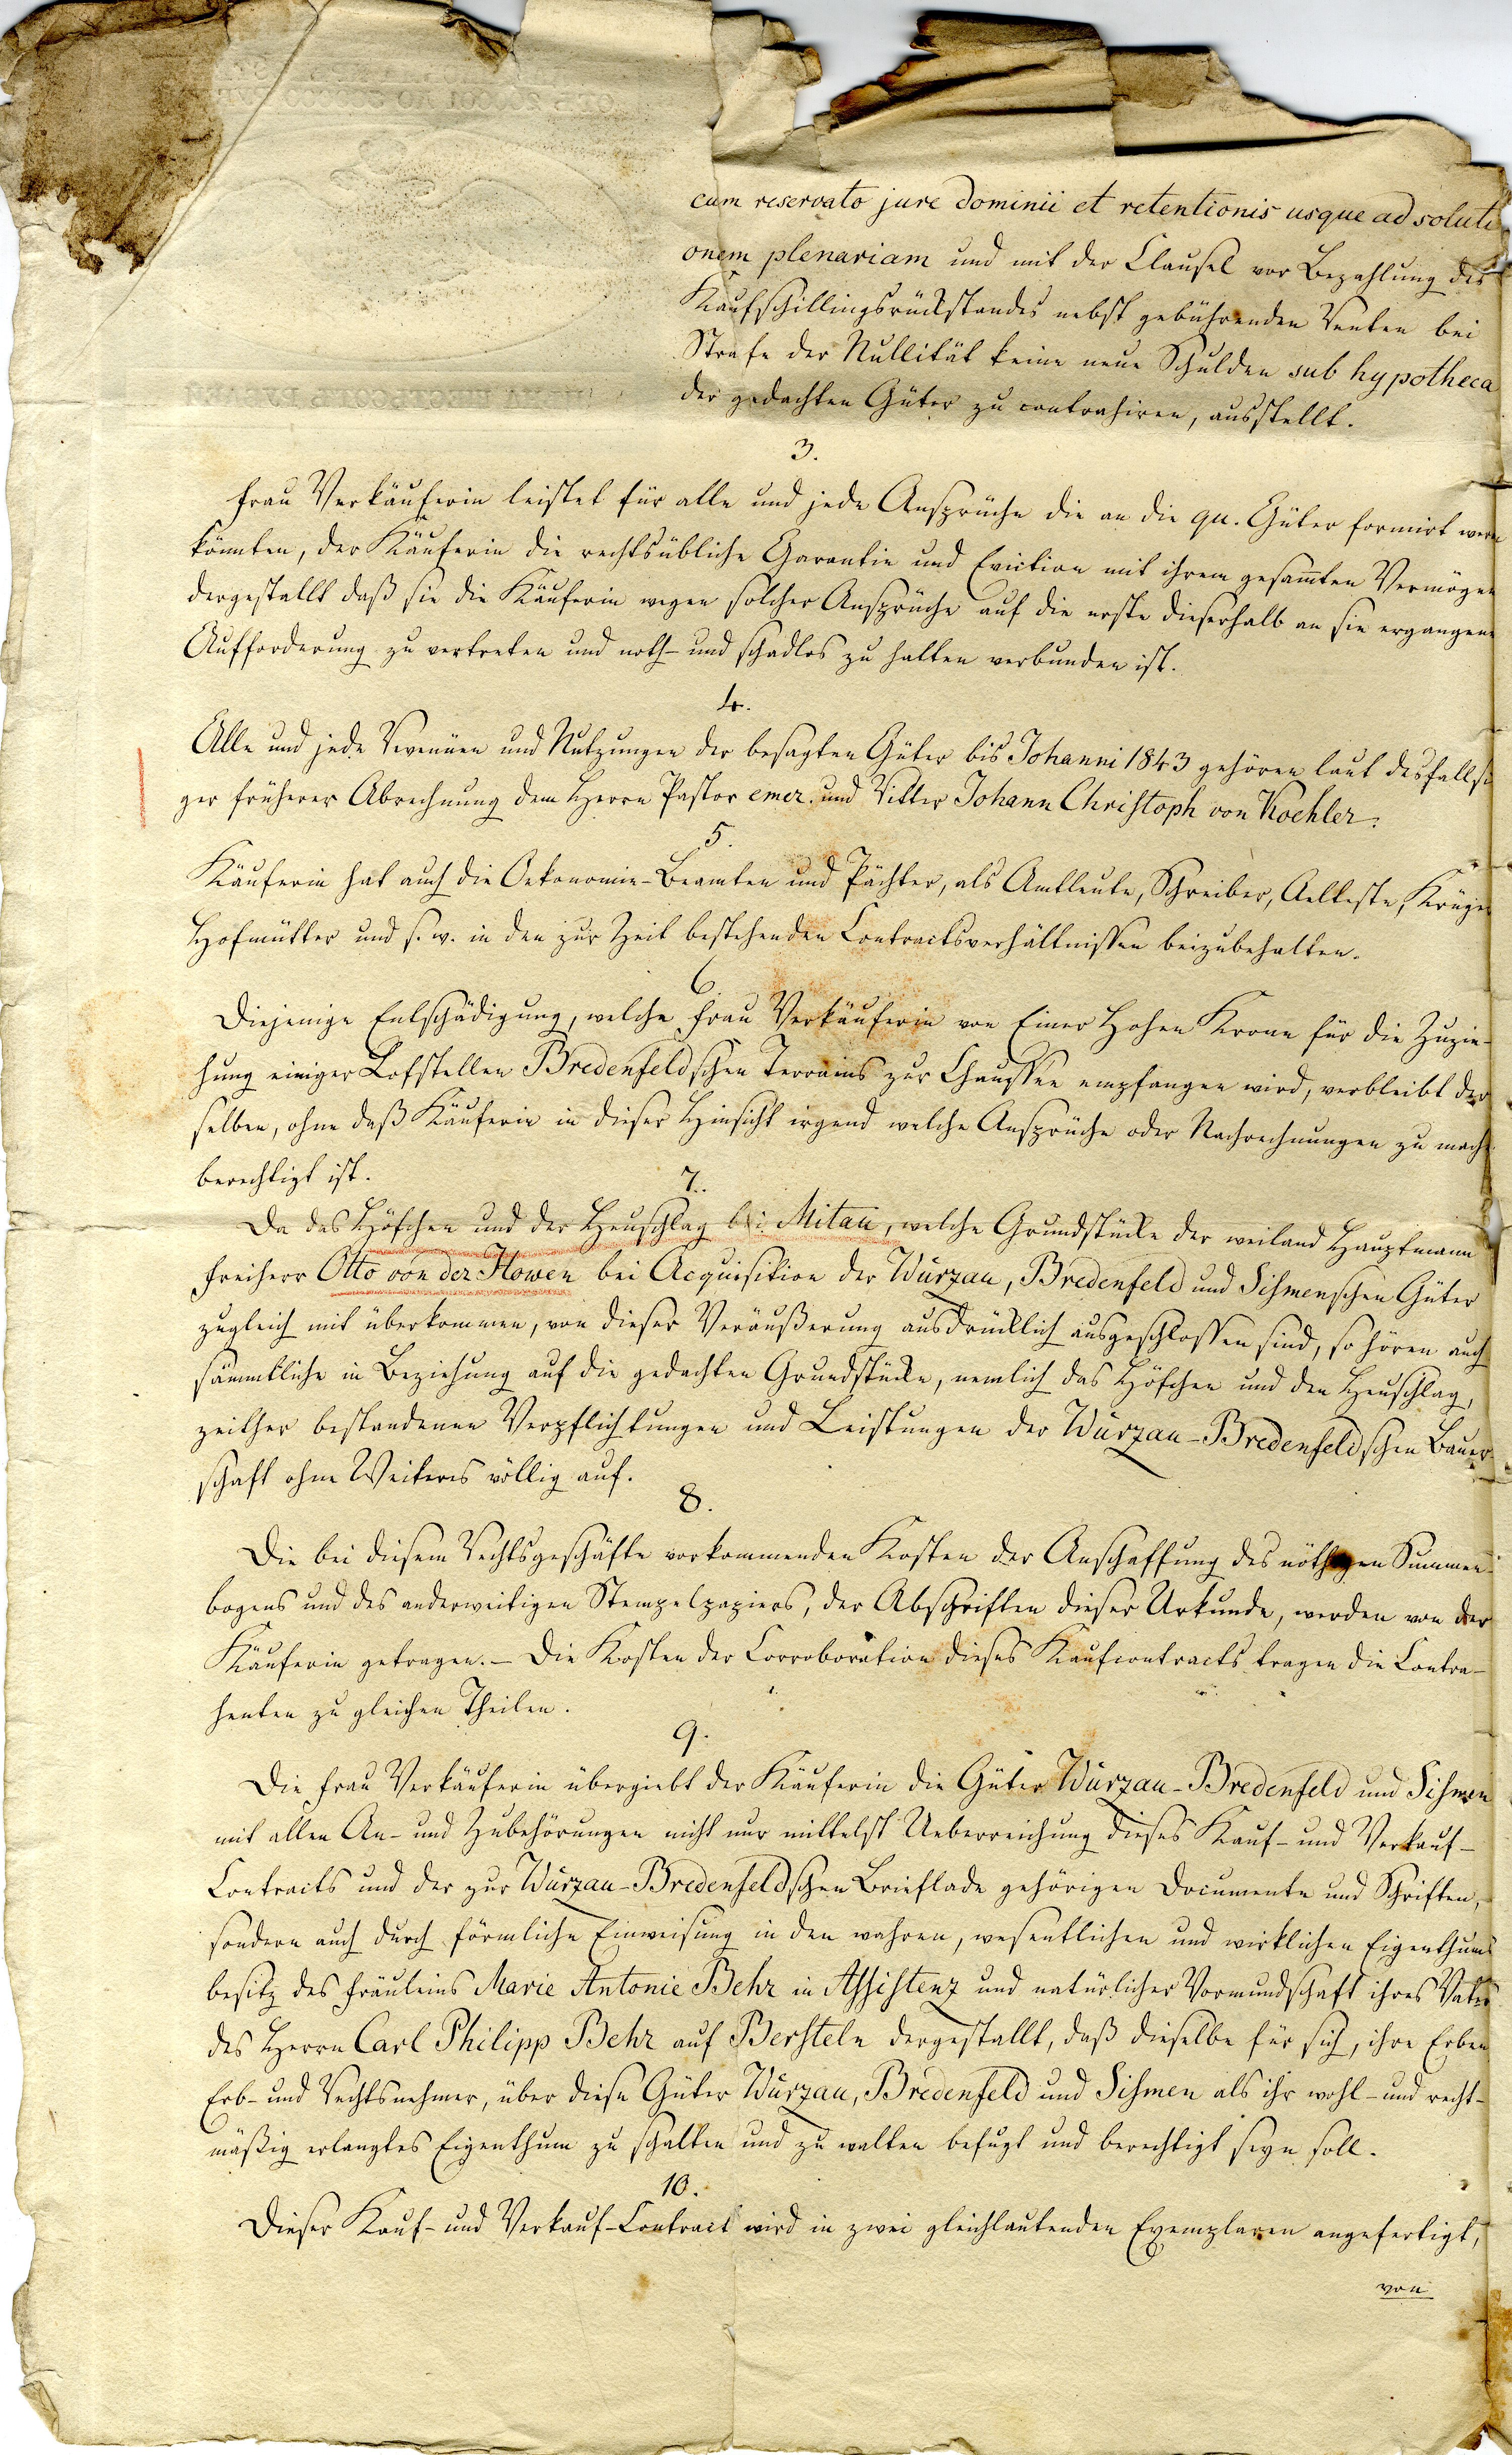 cum reservato jure dominii et retentionis usque ad soluti
onem plenariam und mit der Clausel vor Bezahlung des
Kaufschillingsrückstandes nebst gebührenden Renten bei
Strafe der Nullität keine neue Schulden sub hypotheca
der gedachten Güter zu contrahiren, ausstellt.
3.
Frau Verkäuferin leistet für alle und jede Ansprüche die an die qu. Güter formirt werden
könnten, der Käuferin die rechtsübliche Garantie und Eviction mit ihrem gesam̄ten Vermögen
dergestallt daß sie die Käuferin wegen solcher Ansprüche auf die erste dieserhalb an sie ergangene
Aufforderung zu vertreten und noth- und schadlos zu halten verbunden ist.
4.
Alle und jede Revenüen und Nutzungen der besagten Güter bis Johanni 1843 gehören laut desfallsi
ger früherer Abrechnung dem Herrn Pastor emer. und Ritter Johann Christoph von Koehler.
5.
Käuferin hat auch die Oekonomie-Beamten und Pächter, als Amtleute, Schreiber, Aelteste, Krüger
Hofmütter und s. w. in den zur Zeit bestehenden Contractsverhältnissen beizubehalten.
6.
Diejenige Entschädigung, welche Frau Verkäuferin von Einer Hohen Krone für die Zuzie-
hung einiger Lofstellen Bredenfeldschen Terrains zur Chaussee empfangen wird, verbleibt der
selben, ohne daß Käuferin in dieser Hinsicht irgend welche Ansprüche oder Nachrechnungen zu mach
berechtigt ist.
7.
Da das Höfchen und der Heuschlag bei Mitau, welche Grundstücke der weiland Hauptmann
Freiherr Otto von der Howen bei Acquisition der Würzau, Bredenfeld und Sihmenschen Güter
zugleich mit überkommen, von dieser Veräußerung ausdrücklich ausgeschlossen sind, so hören auch
sämmtliche in Beziehung auf die gedachten Grundstücke, nemlich das Höfchen und den Heuschlag,
zeither bestandenen Verpflichtungen und Leistungen der Würzau-Bredenfeldschen Bauer-
schaft ohne Weiteres völlig auf.
8.
Die bei diesem Rechtsgeschäfte vorkommenden Kosten der Anschaffung des nöthigen Summen-
bogens und des anderweitigen Stempelpapiers, der Abschriften dieser Urkunde, werden von der
Käuferin getragen. – Die Kosten der Corroboration dieses Kaufcontracts tragen die Contra-
henten zu gleichen Theilen.
9.
Die Frau Verkäuferin übergiebt der Käuferin die Güter Würzau-Bredenfeld und Sihmen
mit allen An- und Zubehörungen nicht nur mittelst Ueberreichung dieses Kauf- und Verkauf-
Contracts und der zur Würzau-Bredenfeldschen Brieflade gehörigen Documente und Schriften,
sondern auch durch förmliche Einweisung in den wahren, wesentlichen und wirklichen Eigenthums
besitz des Fräuleins Marie Antonie Behr in Assistenz und natürlicher Vormundschaft ihres Vaters
des Herrn Carl Philipp Behr auf Bersteln dergestallt, daß dieselbe für sich, ihre Erben
Erb- und Rechtsnehmer, über diese Güter Würzau, Bredenfeld und Sihmen als ihr wohl- und recht-
mäßig erlangtes Eigenthum zu schalten und zu walten befugt und berechtigt seyn soll.
10.
Dieser Kauf- und Verkauf-Contract wird in zwei gleichlautenden Exemplaren angefertigt,
von